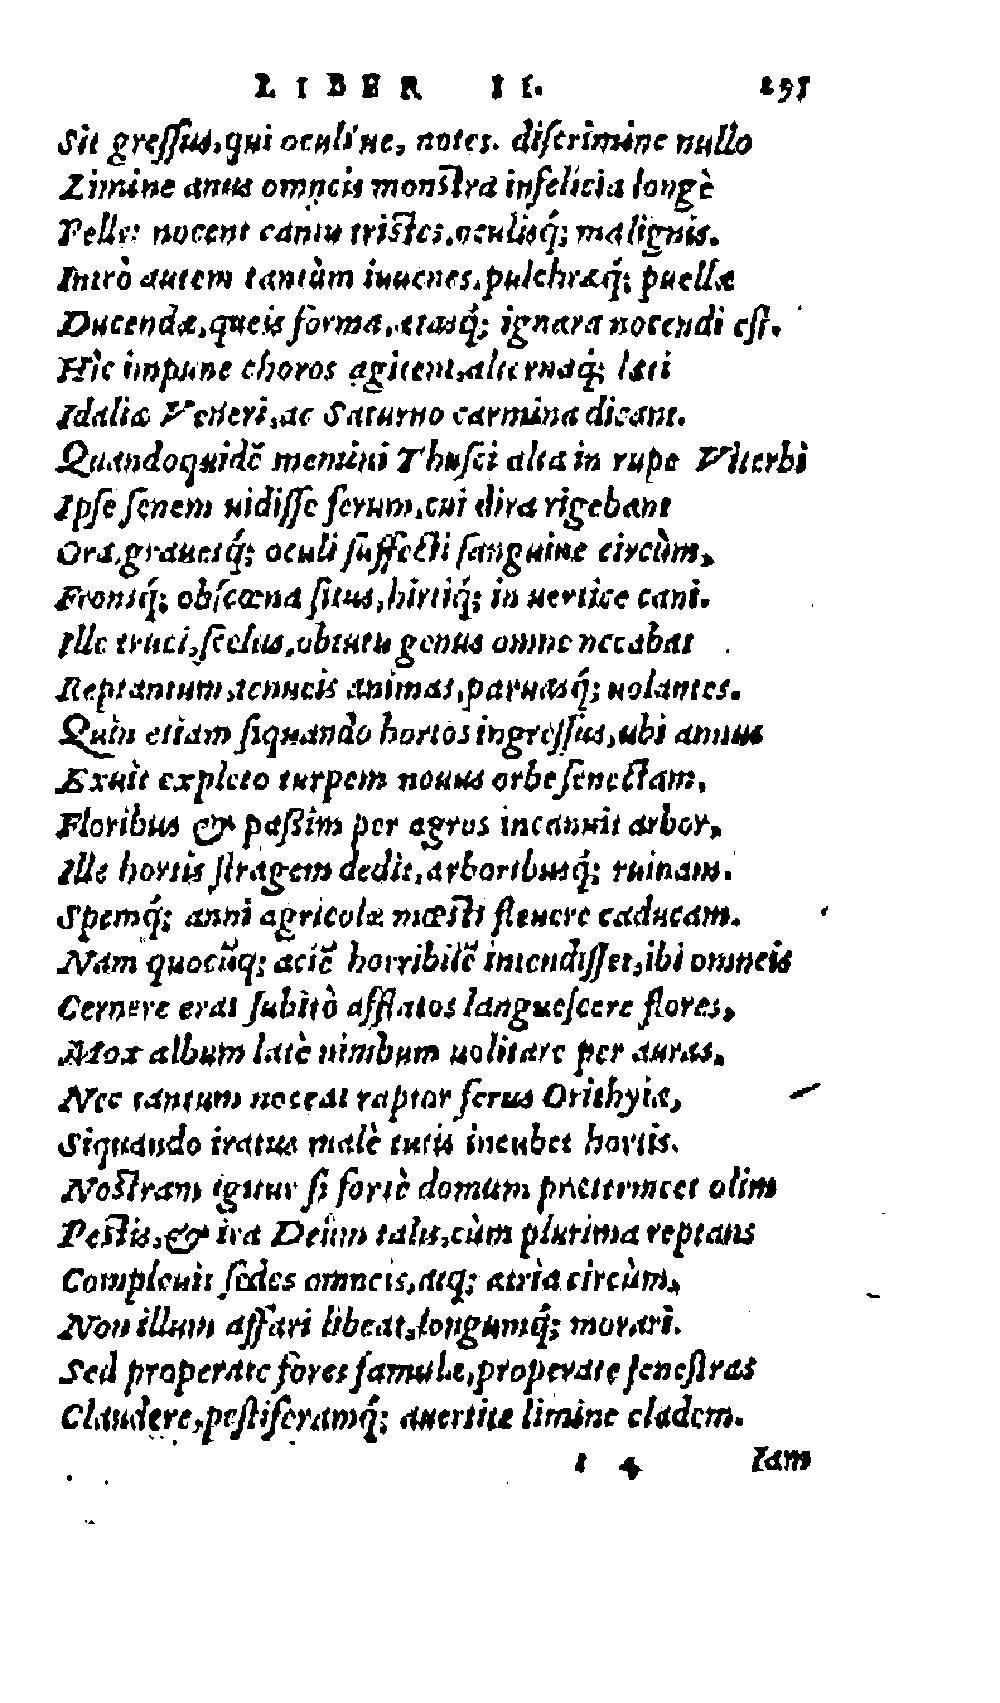 LIBER II.
Sit greſſus, qui oculi'ue, notes. diſcrimine nullo
Limine anus omneis monſtra infelicia longè
Pelle: nocent cantu triſtes, oculisq́; malignis.
Intrò autem tantùm iuuenes, pulchræq́; puellæ
Ducendæ, queis forma, ætasq́; ignara nocendi eſt.
Hîc impune choros agitent, alternaq́; læti
Idaliæ Veneri, ac Saturno carmina dicant.
Quandoquidẽ memini Thuſci alta in rupe Viterbi
Ipſe ſenem uidiſſe ferum, cui dira rigebant
Ora, grauesq́; oculi ſuffecti ſanguine circùm,
Fronsq́; obſcœna ſitus, hirtiq́; in uertice cani.
Ille truci, ſcelus, obtutu genus omne necabat
Reptantum, tenueis animas, paruasq́; uolantes.
Quin etiam ſiquando hortos ingreſſus, ubi annus
Exuit expleto turpem nouus orbe ſenectam,
Floribus & paßim per agros incanuit arbor,
Ille hortis ſtragem dedit, arboribusq́; ruinam.
Spemq́; anni agricolæ mœſti fleuere caducam.
Nam quocũq; aciẽ horribilẽ intendiſſet, ibi omneis
Cernere erat ſubitò afflatos langueſcere flores,
Mox album latè nimbum uolitare per auras.
Nec tantum noceat raptor ferus Orithyiæ,
Siquando iratus malè tutis incubet hortis.
Noſtram igitur ſi fortè domum prætermeet olim
Peſtis, & ira Deûm talis, cùm plurima reptans
Compleuit ſedes omneis, atq; atria circùm,
Non illum affari libeat, longumq́; morari.
Sed properate fores famulæ, properate feneſtras
Claudere, peſtiferamq́; auertite limine cladem.
I 4 Iam